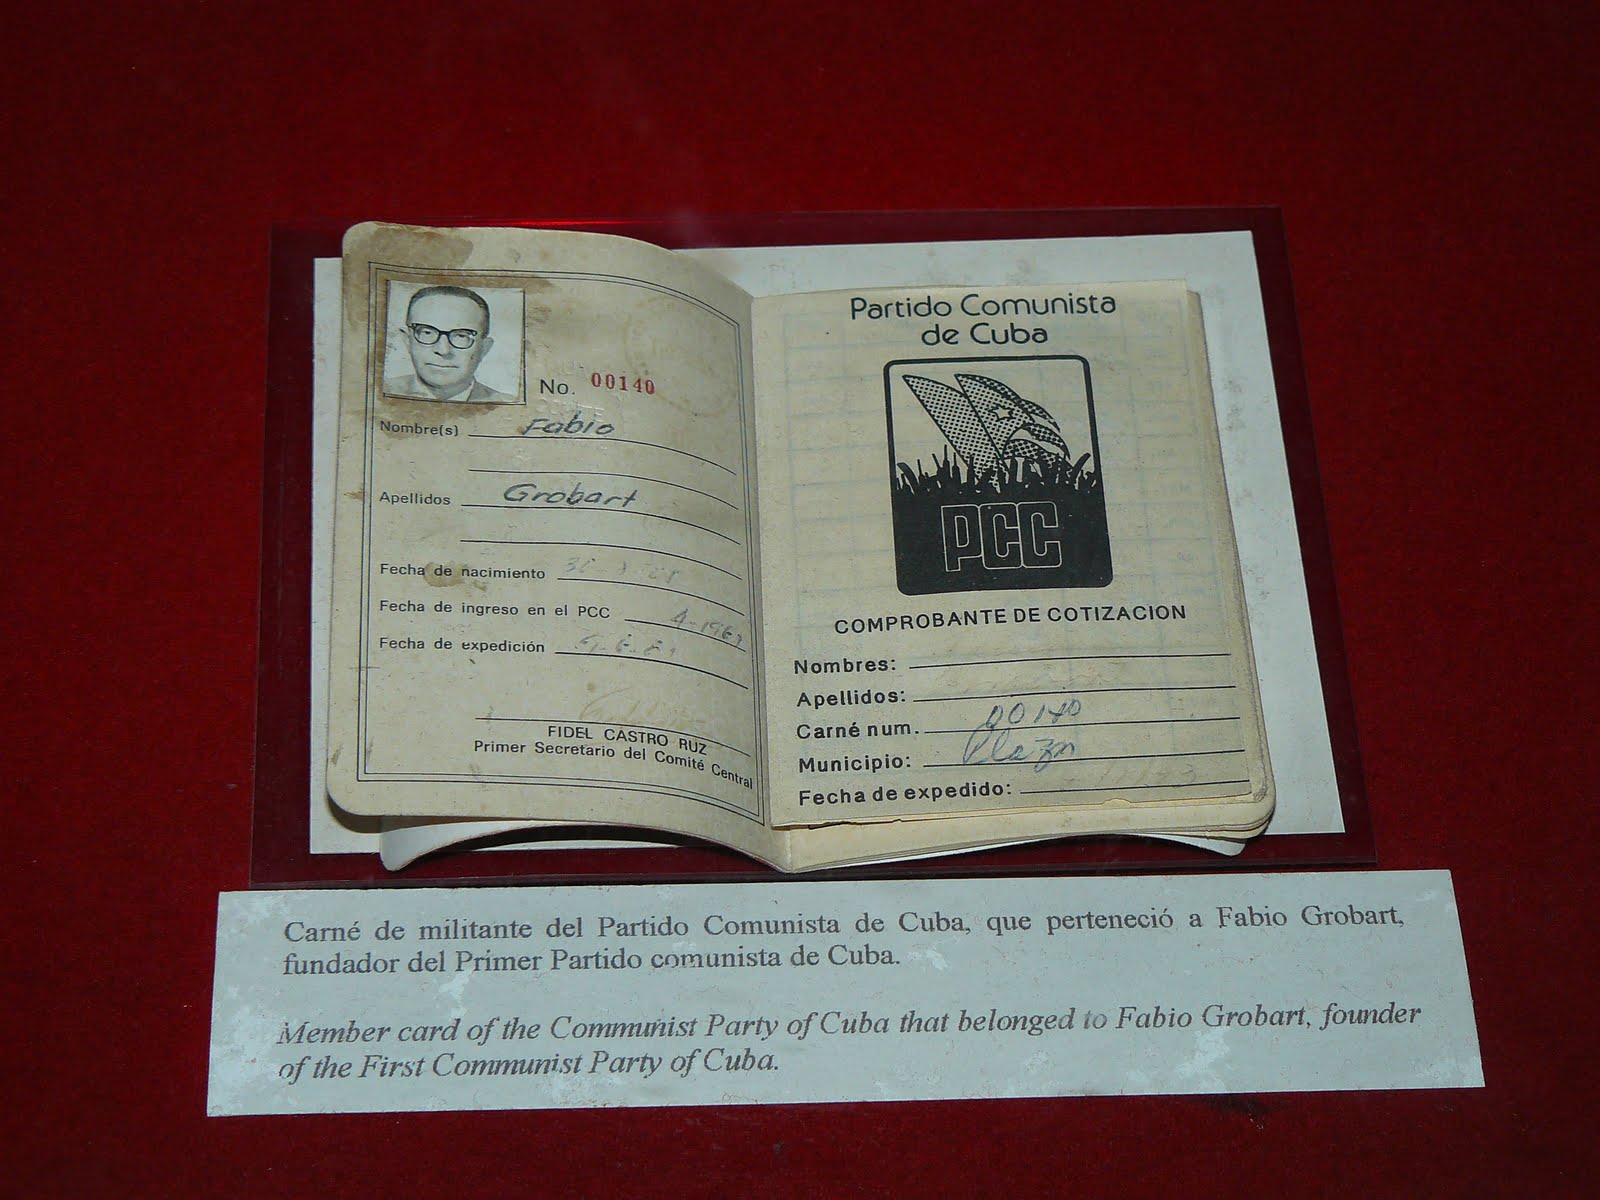 No. 00140
Nombre(s) Fabio
Apellidos Grobart
Fecha de nacimiento
Fecha de ingreso en el PCC
Fecha de expedición
FIDEL CASTRO RUZ
Primer Secretario del Comité Central
Partido Comunista
de Cuba
PCC
COMPROBANTE DE COTIZACION
Nombres:
Apellidos:
Carné num. 00140
Municipio: Plaza
Fecha de expedido:
Carné de militante del Partido Comunista de Cuba, que perteneció a Fabio Grobart,
fundador del Primer Partido comunista de Cuba.
Member card of the Communist Party of Cuba that belonged to Fabio Grobart, founder
of the First Communist Party of Cuba.